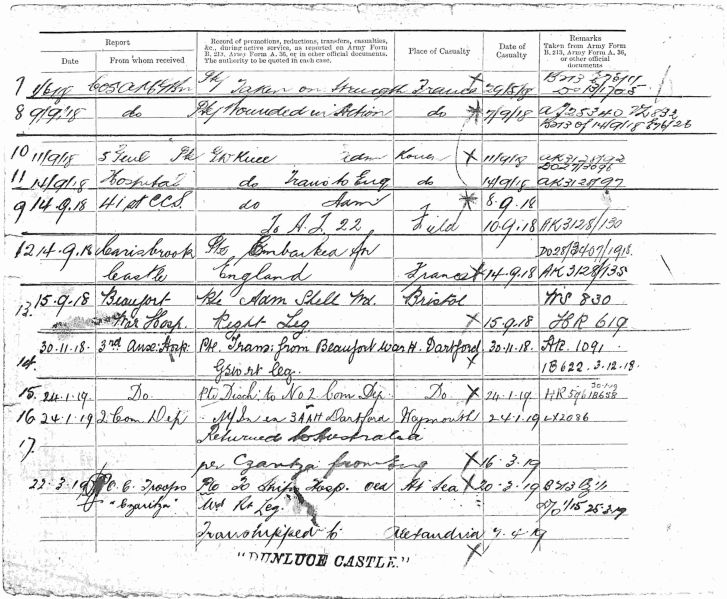 Report
Date
From whom received
Record of promotions, reductions, transfers, casualties, &c., during active service, as reported on Army Form B. 213, Army Form A. 36, or in other official documents. The authority to be quoted in each case.
Place of Casualty
Date of Casualty
Remarks
Taken from Army Form B. 213, Army Form A. 36, or other official documents
7 1/6/18 Pte Taken on Strength France 29/5/18
8 9/9/18 do Pte Wounded in Action do 7/9/18
B213 of 14/9/18
10 11/9/18 5 Genl Pte GSW Knee adm Rouen 11/9/18 AK3128/92
11 14/9/18 Hospital do Trans to Eng do 14/9/18 AK3128/97
9 14.9.18 41st CCS do Adm 8.9.18
To A.T. 22 Field 10.9.18 AK3128/130
12 14.9.18 Carisbrook Pte Embarked for
Castle England France 14.9.18 AK3128/135
13. 15.9.18 Beaufort Pte Adm Shell Wd. Bristol WS 830
War Hosp. Right Leg 15.9.18 HR 619
30.11.18 3rd Aux. Hosp. Pte. Trans: from Beaufort War H. Dartford 30.11.18 AR. 1091
14. GSW rt leg. 1B622.3.12.18
15. 24.1.19 Do. Pte Disch: to No 2 Com Dep Do 24.1.19
16 24.1.19 2 Com Dep M/In en 3AAH Dartford Weymouth 24.1.19
17. Returned to Australia
per Czaritza from Eng 16.3.19
22.3.19 O.C. Troops Pte To Ships Hosp. At Sea 20.3.19 B213
"Czaritza" Wd Rt Leg. 25.3.19
Transhipped to Alexandria 7.4.19
"DUNLUCE CASTLE."